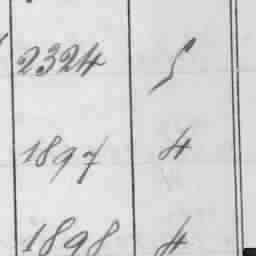 2324 5
1897 4
1898 4